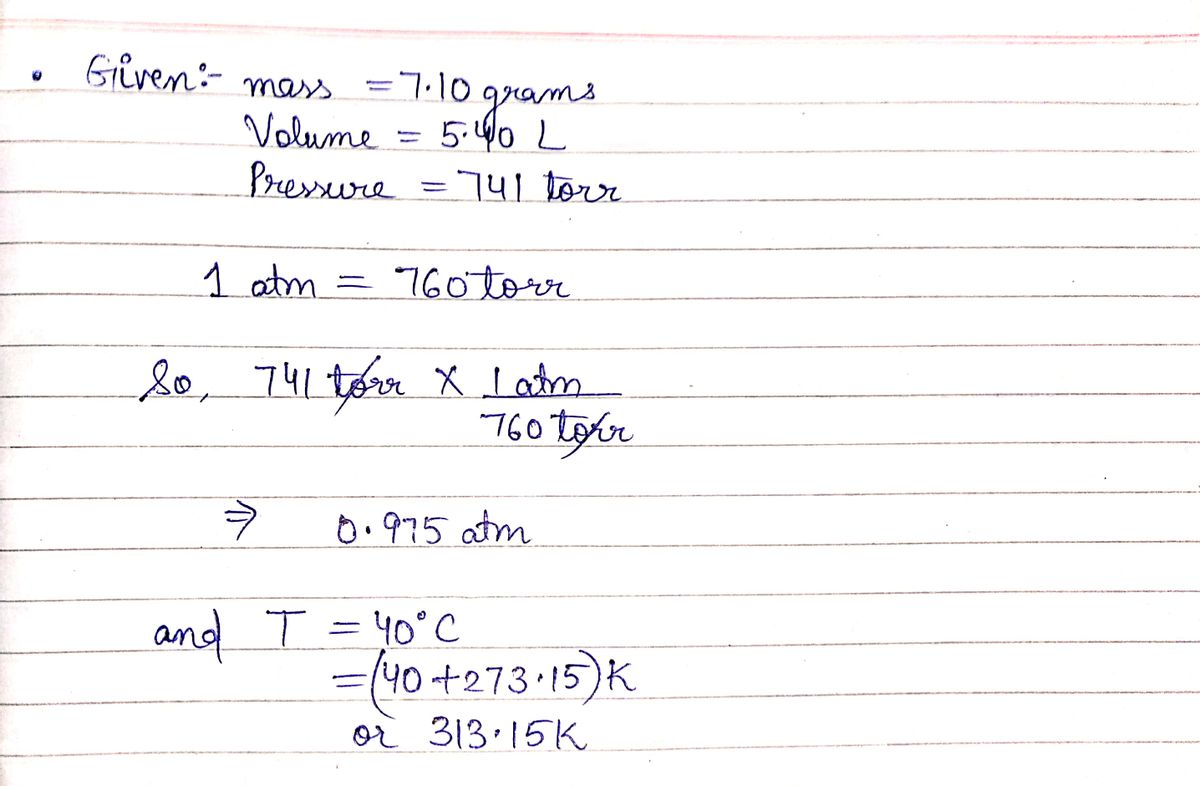 • Given:- mass = 7.10 grams
Volume = 5.40 L
Pressure = 741 torr
1 atm = 760 torr
So, 741 torr × 1 atm
760 torr
⇒ 0.975 atm
and T = 40°C
= (40 + 273.15) K
or 313.15K